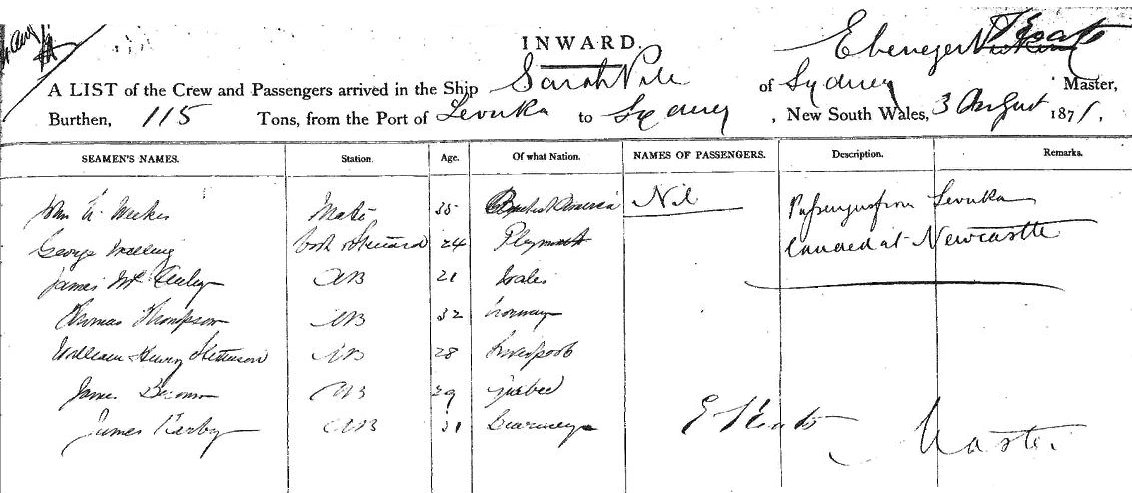 INWARD.
Ebenezer
A LIST of the Crew and Passengers arrived in the Ship Sarah Pile of Sydney Master,
Burthen, 115 Tons, from the Port of Levuka to Sydney, New South Wales, 3 August 1871.
SEAMEN'S NAMES. Station. Age. Of what Nation. NAMES OF PASSENGERS. Description. Remarks.
John Mate 35 America Nil Passengers from Levuka
George Cook & Steward 24 Plymouth landed at Newcastle
James AB 21 Wales
Thomas Thompson AB 32 Norway
William Henry AB 28 Liverpool
James AB 29 Quebec
James Kerby AB 31 Guernsey
E Master